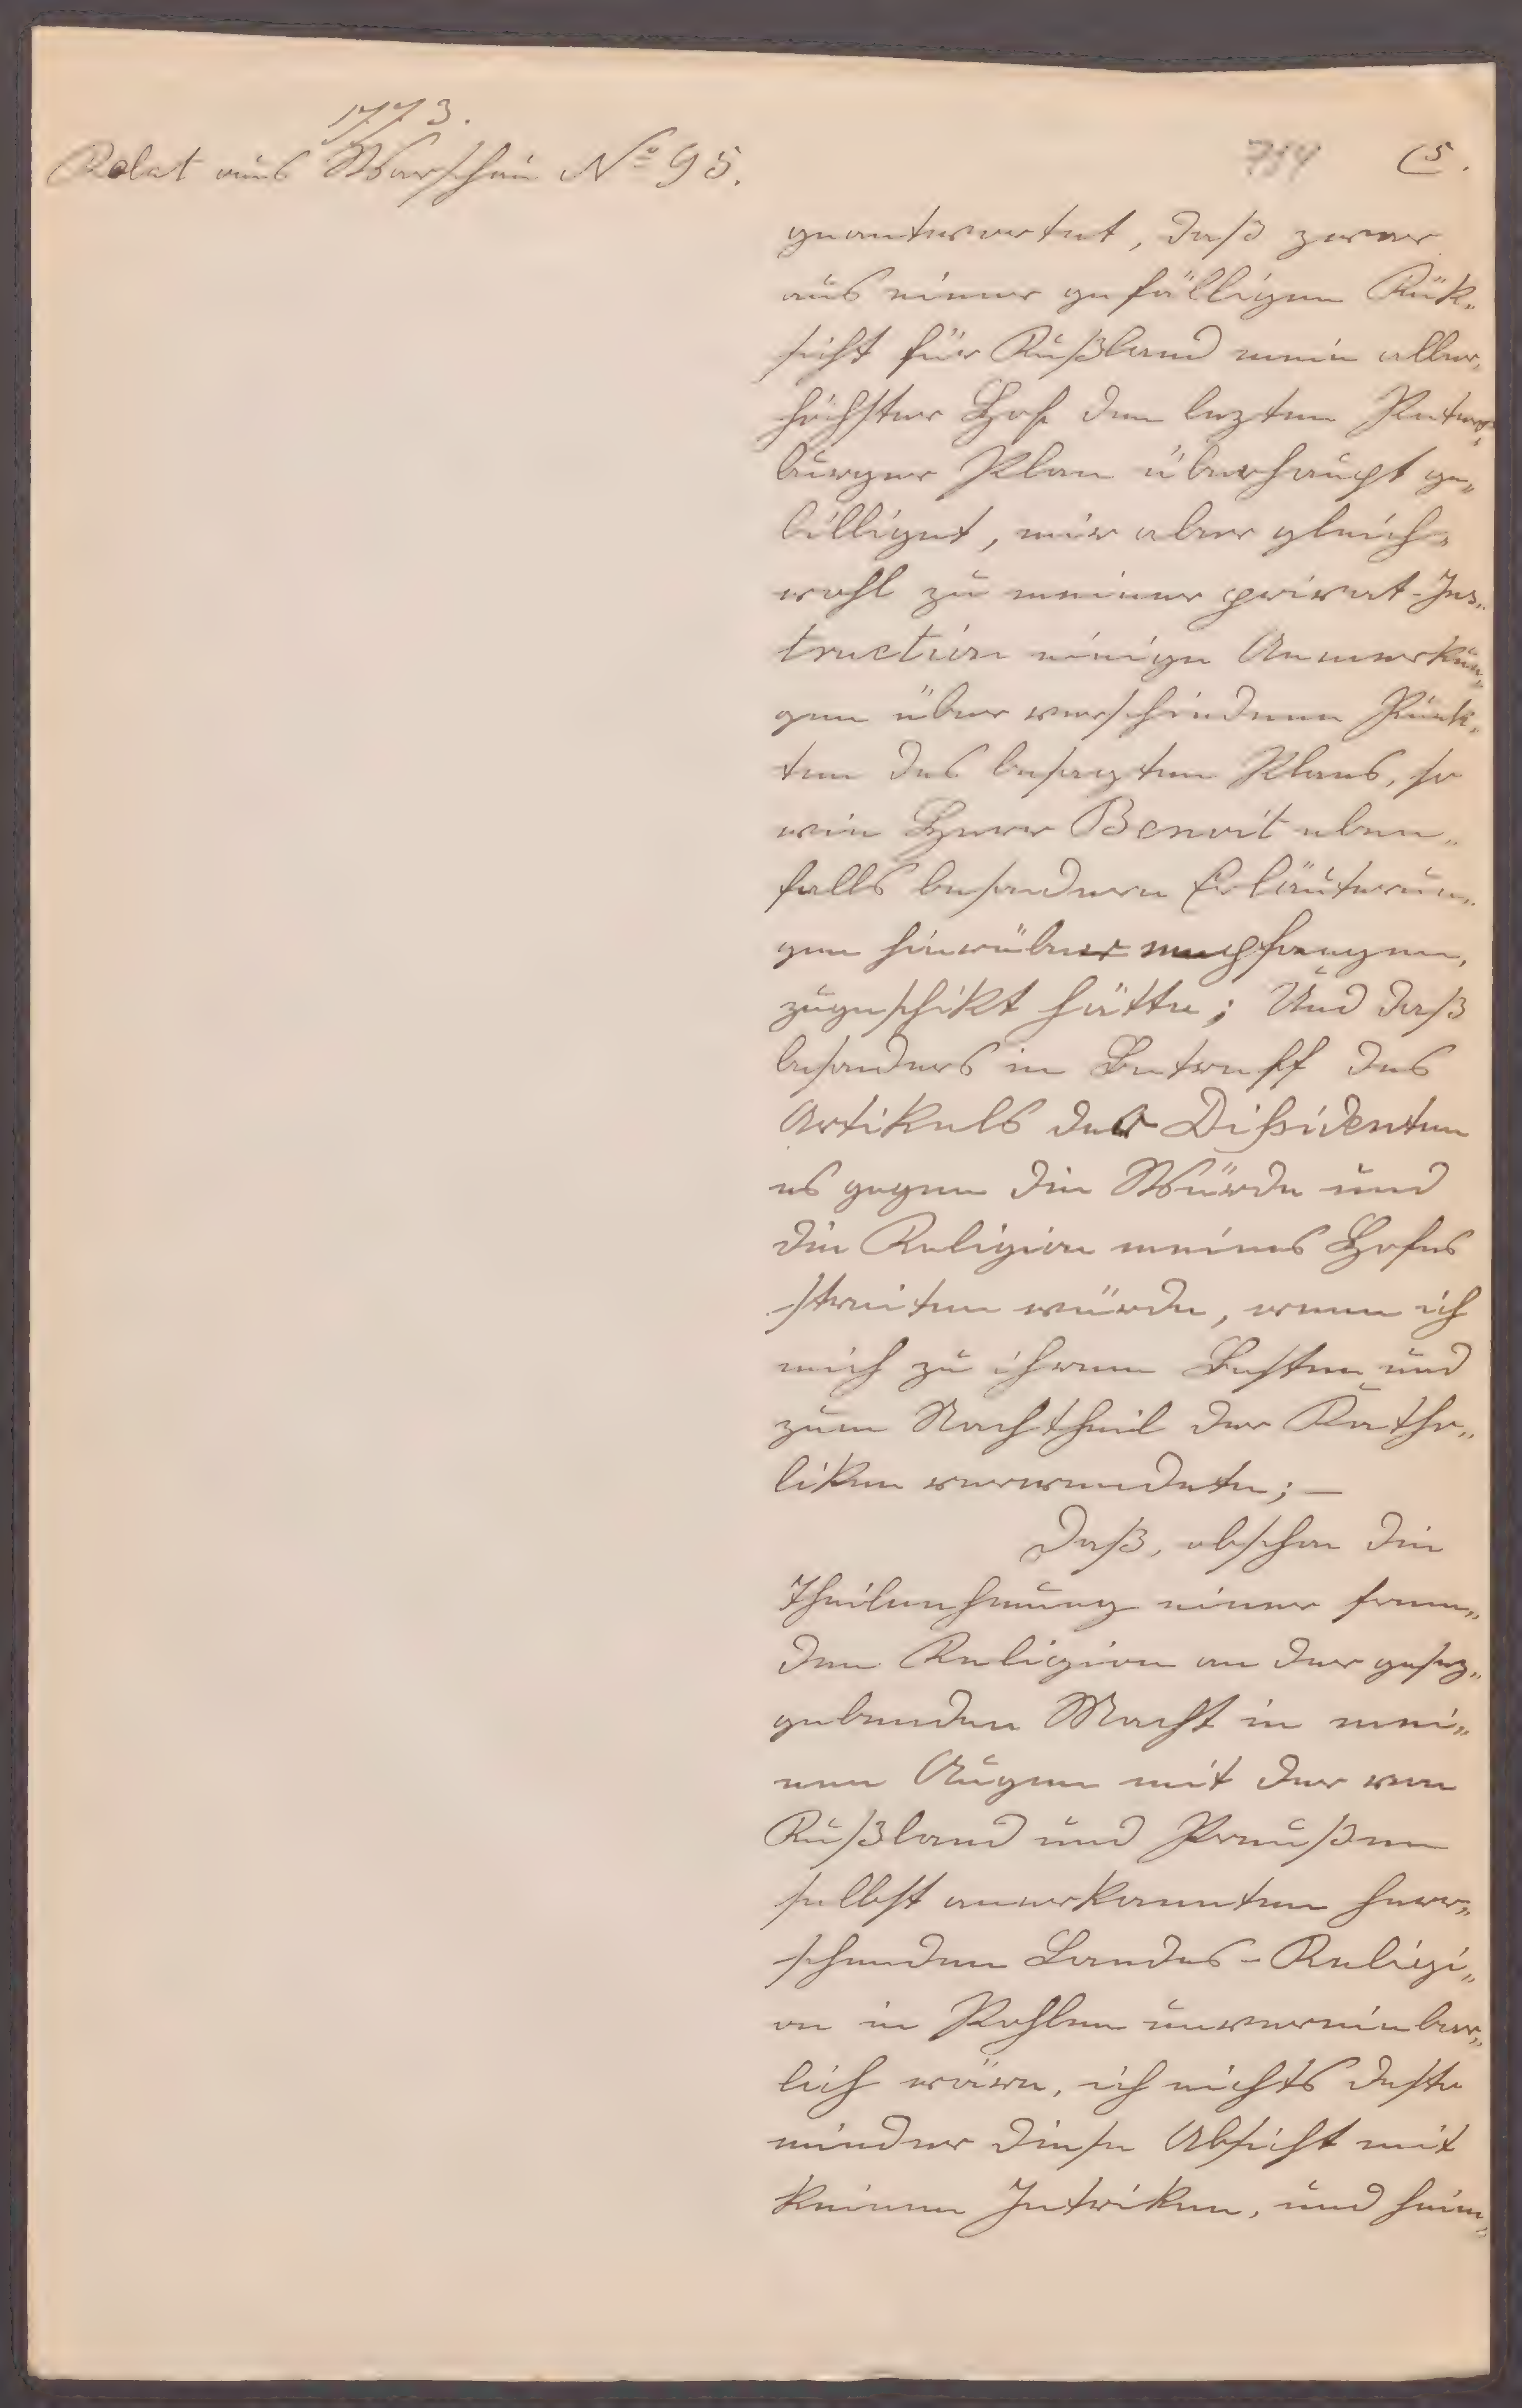 1773.
Relat aus Warschau No 95.
714 5.
geantwortet, daß zwar
aus einer gefälligen Rük„
sicht für Rußland mein aller„
höchster Hof den lezten Peters„
burger Plan überhaupt ge„
billiget, mir aber gleich„
wohl zu meiner privat-Ins„
truction einige Anmerkun„
gen über verschiedene Punk„
ten des besagten Plans, so
wie Herr Benoit eben„
falls besondere Erläuterun„
gen hierüber empfangen,
zugeschikt hätte; Und daß
besonders in Betreff des
Artikels der Dißidenten
es gegen die Würde und
die Religion meines Hofes
streiten würde, wenn ich
mich zu ihrem Besten und
zum Nachtheil der Katho„
liken verwendete; —
Daß, obschon die
Theilnehmung einer frem„
den Religion an der gesez„
gebenden Macht in mei„
nen Augen mit der von
Rußland und Preußen
selbst anerkannten herr„
schenden Landes-Religi„
on in Pohlen unvereinbar„
lich wäre, ich nichts desto
minder diese Absicht mit
keinen Intriken, und heim„